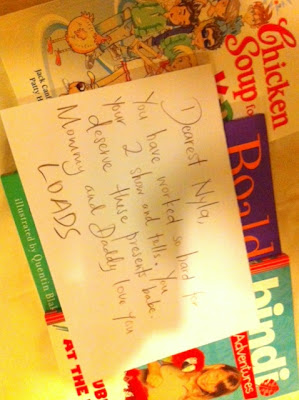 Chicken
Soup for
Jack Can
Patty H
Dearest Nyla,
You have worked so hard for
your 2 show and tells. You
deserve these presents babe.
Mommy and Daddy love you
LOADS
Roald
illustrated by Quentin Blak
bindi
Adventures
AT THE